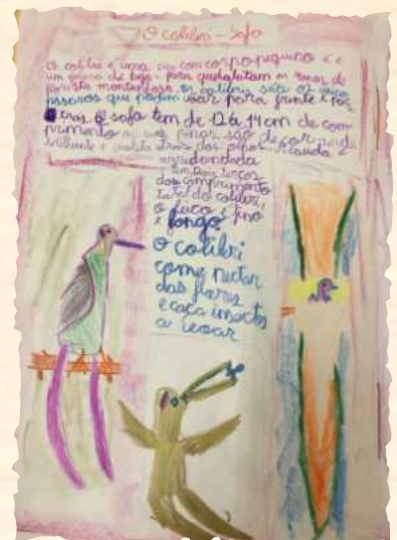 O colibri - Safo
O colibri é uma ave com corpo pequeno
um género de
floresta montanhosa os colibris são os únicos
pássaros que podem voar para frente e para
trás o safo tem de 12 a 14 cm de com
primento as penas são de cor verde
brilhante e violeta atras dos olhos. A cauda é
arredondada
tem dois terços
do comprimento
total do colibri,
o bico é fino
e longo.
O colibri
come nectar
das flores
e caça insectos
a voar